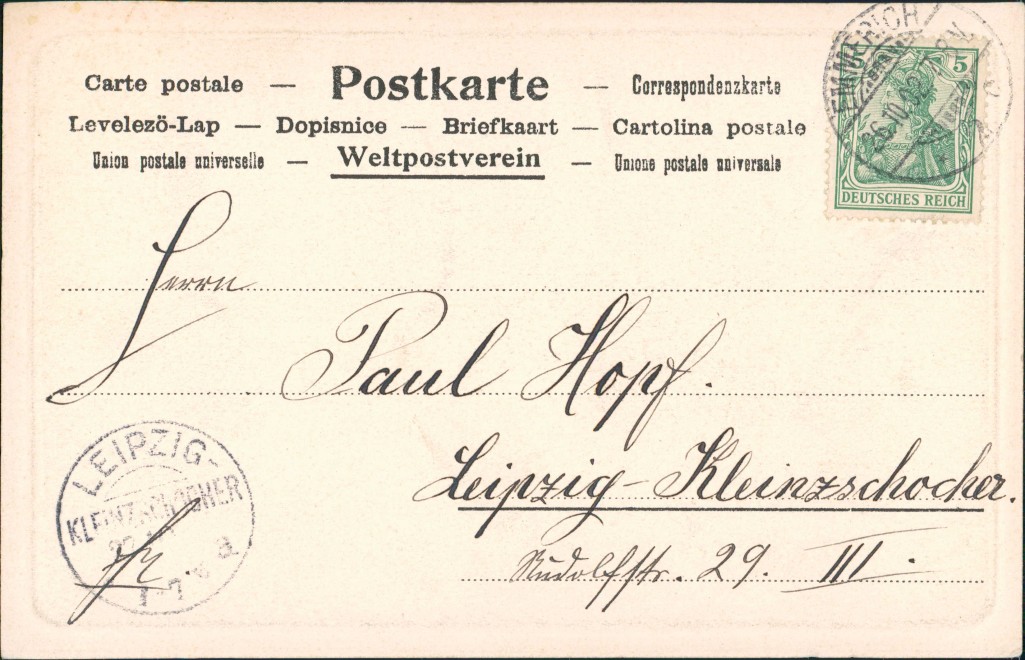 Carte postale — Postkarte — Correspondenzkarte
Levelezö-Lap — Dopisnice — Briefkaart — Cartolina postale
Union postale universelle — Weltpostverein — Unione postale universale
EMMERICH
26.10.02
5
DEUTSCHES REICH
Herrn
Paul Hopf.
Leipzig-Kleinzschocher.
Rudolfstr. 29. III.
LEIPZIG-
KLEINZSCHOCHER
a